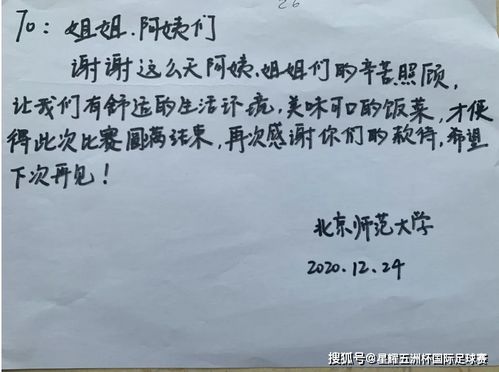 26
TO：姐姐、阿姨们
谢谢这么天阿姨、姐姐们的辛苦照顾，
让我们有舒适的生活环境，美味可口的饭菜，才使
得此次比赛圆满结束，再次感谢你们的款待，希望
下次再见！
北京师范大学
2020.12.24
搜狐号@星耀五洲杯国际足球赛